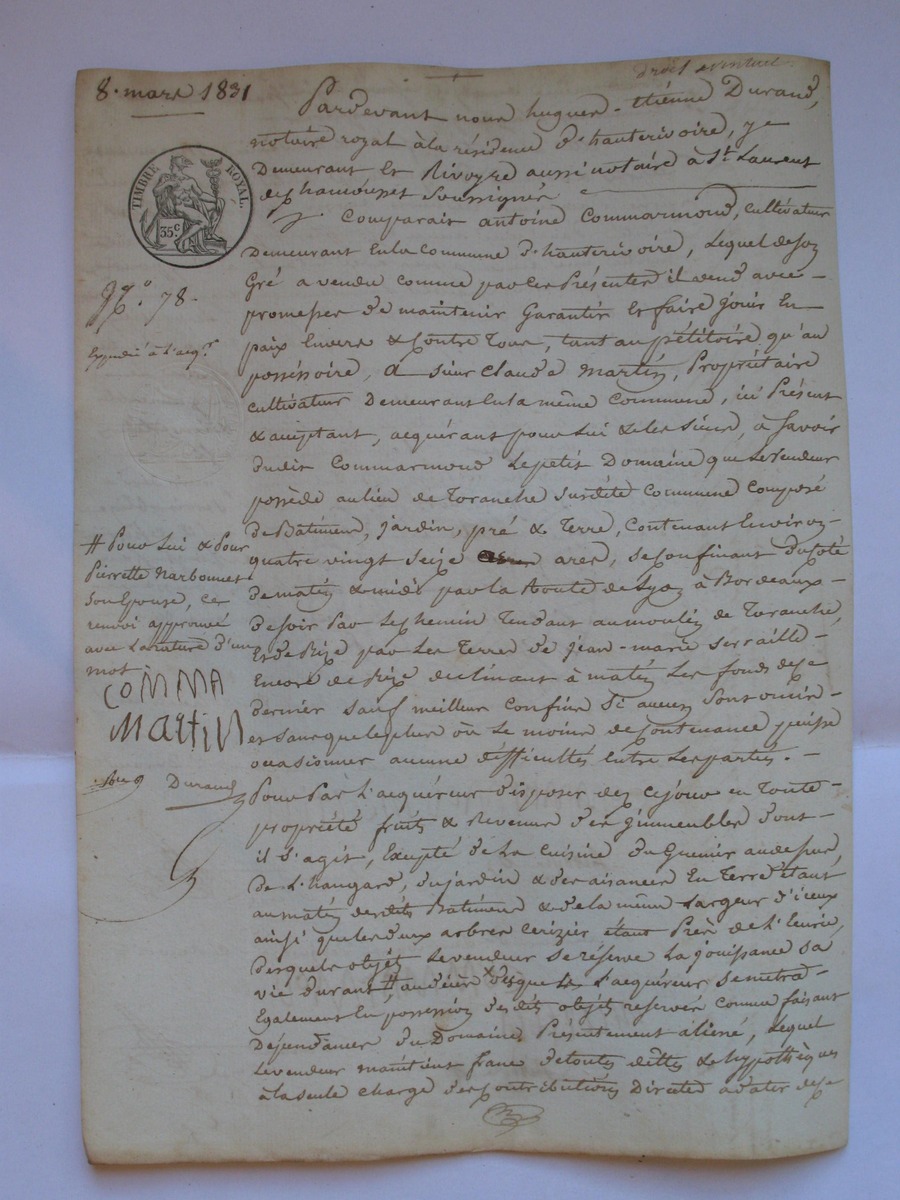 8. mars 1831
droit eventuel
Pardevant nous hugues-Etienne Durand,
notaire royal à la résidence d'hauterivoire, y
Demeurant et Rivoyre aussi notaire à St. Laurent
de chamousset soussignés
TIMBRE ROYAL.
35 c.
comparait antoine Commarmond, cultivateur
Demeurant en la Commune d'hauterivoire, Lequel de son
Gré a vendu comme par ces Présentes il vend avec
promesses de maintenir Garantir et faire Jouir en
paix Envers & Contre Tous, tant au pétitoire qu'au
possessoire, a sieur Claude Martin, Propriétaire
cultivateur Demeurant en la même commune, ici Présent
& acceptant, acquérant pour Lui & les siens, à Savoir
dudit Commarmond Le petit Domaine que le vendeur
possède au lieu de Toranche susdite Commune composé
de Batiment, Jardin, pré & Terre, contenant Environ
quatre vingt seize ares, se confinant du coté
de matin & midi par la Route de Lyon à Bordeaux
de soir Par Le chemin Tendant au moulin de Toranche,
Et de Bize par Les Terres de jean-marie serraille
Encore de Bize déclinant à matin Les fonds de ce
dernier sauf meilleur confins Si aucuns sont omis
et sans que le plus où Le moins de contenance puisse
occasionner aucune difficultés entre Les parties.
N.° 78.
Expédié à l'acq.r
# Pour Lui & Pour
Pierrette Narbonnet
Son Epouse, ce
renvoi approuvé
avec La rature d'un
mot
COMMA
Martin
Durand
Pour Par L'acquéreur disposer dez ce jour en Toute
propriété fruits & Revenus des Immeubles dont
il s'agit, Excepté de La Cuisine du Grenier au dessus,
de L'hangard, du jardin & des aisances En Terre étant
au matin desdits Batimens & de la même Largeur d'iceux
ainsi que les deux arbres cerizier étant Près de L'Ecurie,
desquels objets Le vendeur se réserve La jouissance sa
vie durant, au décès desquels L'acquéreur se mettra
Egalement En possession desdits objets reservés comme faisant
Dépendances du Domaine Présentement aliené, Lequel
Le vendeur maintient franc de toutes dettes & hypothèques
à la seule charge des contributions Directes à dater de ce